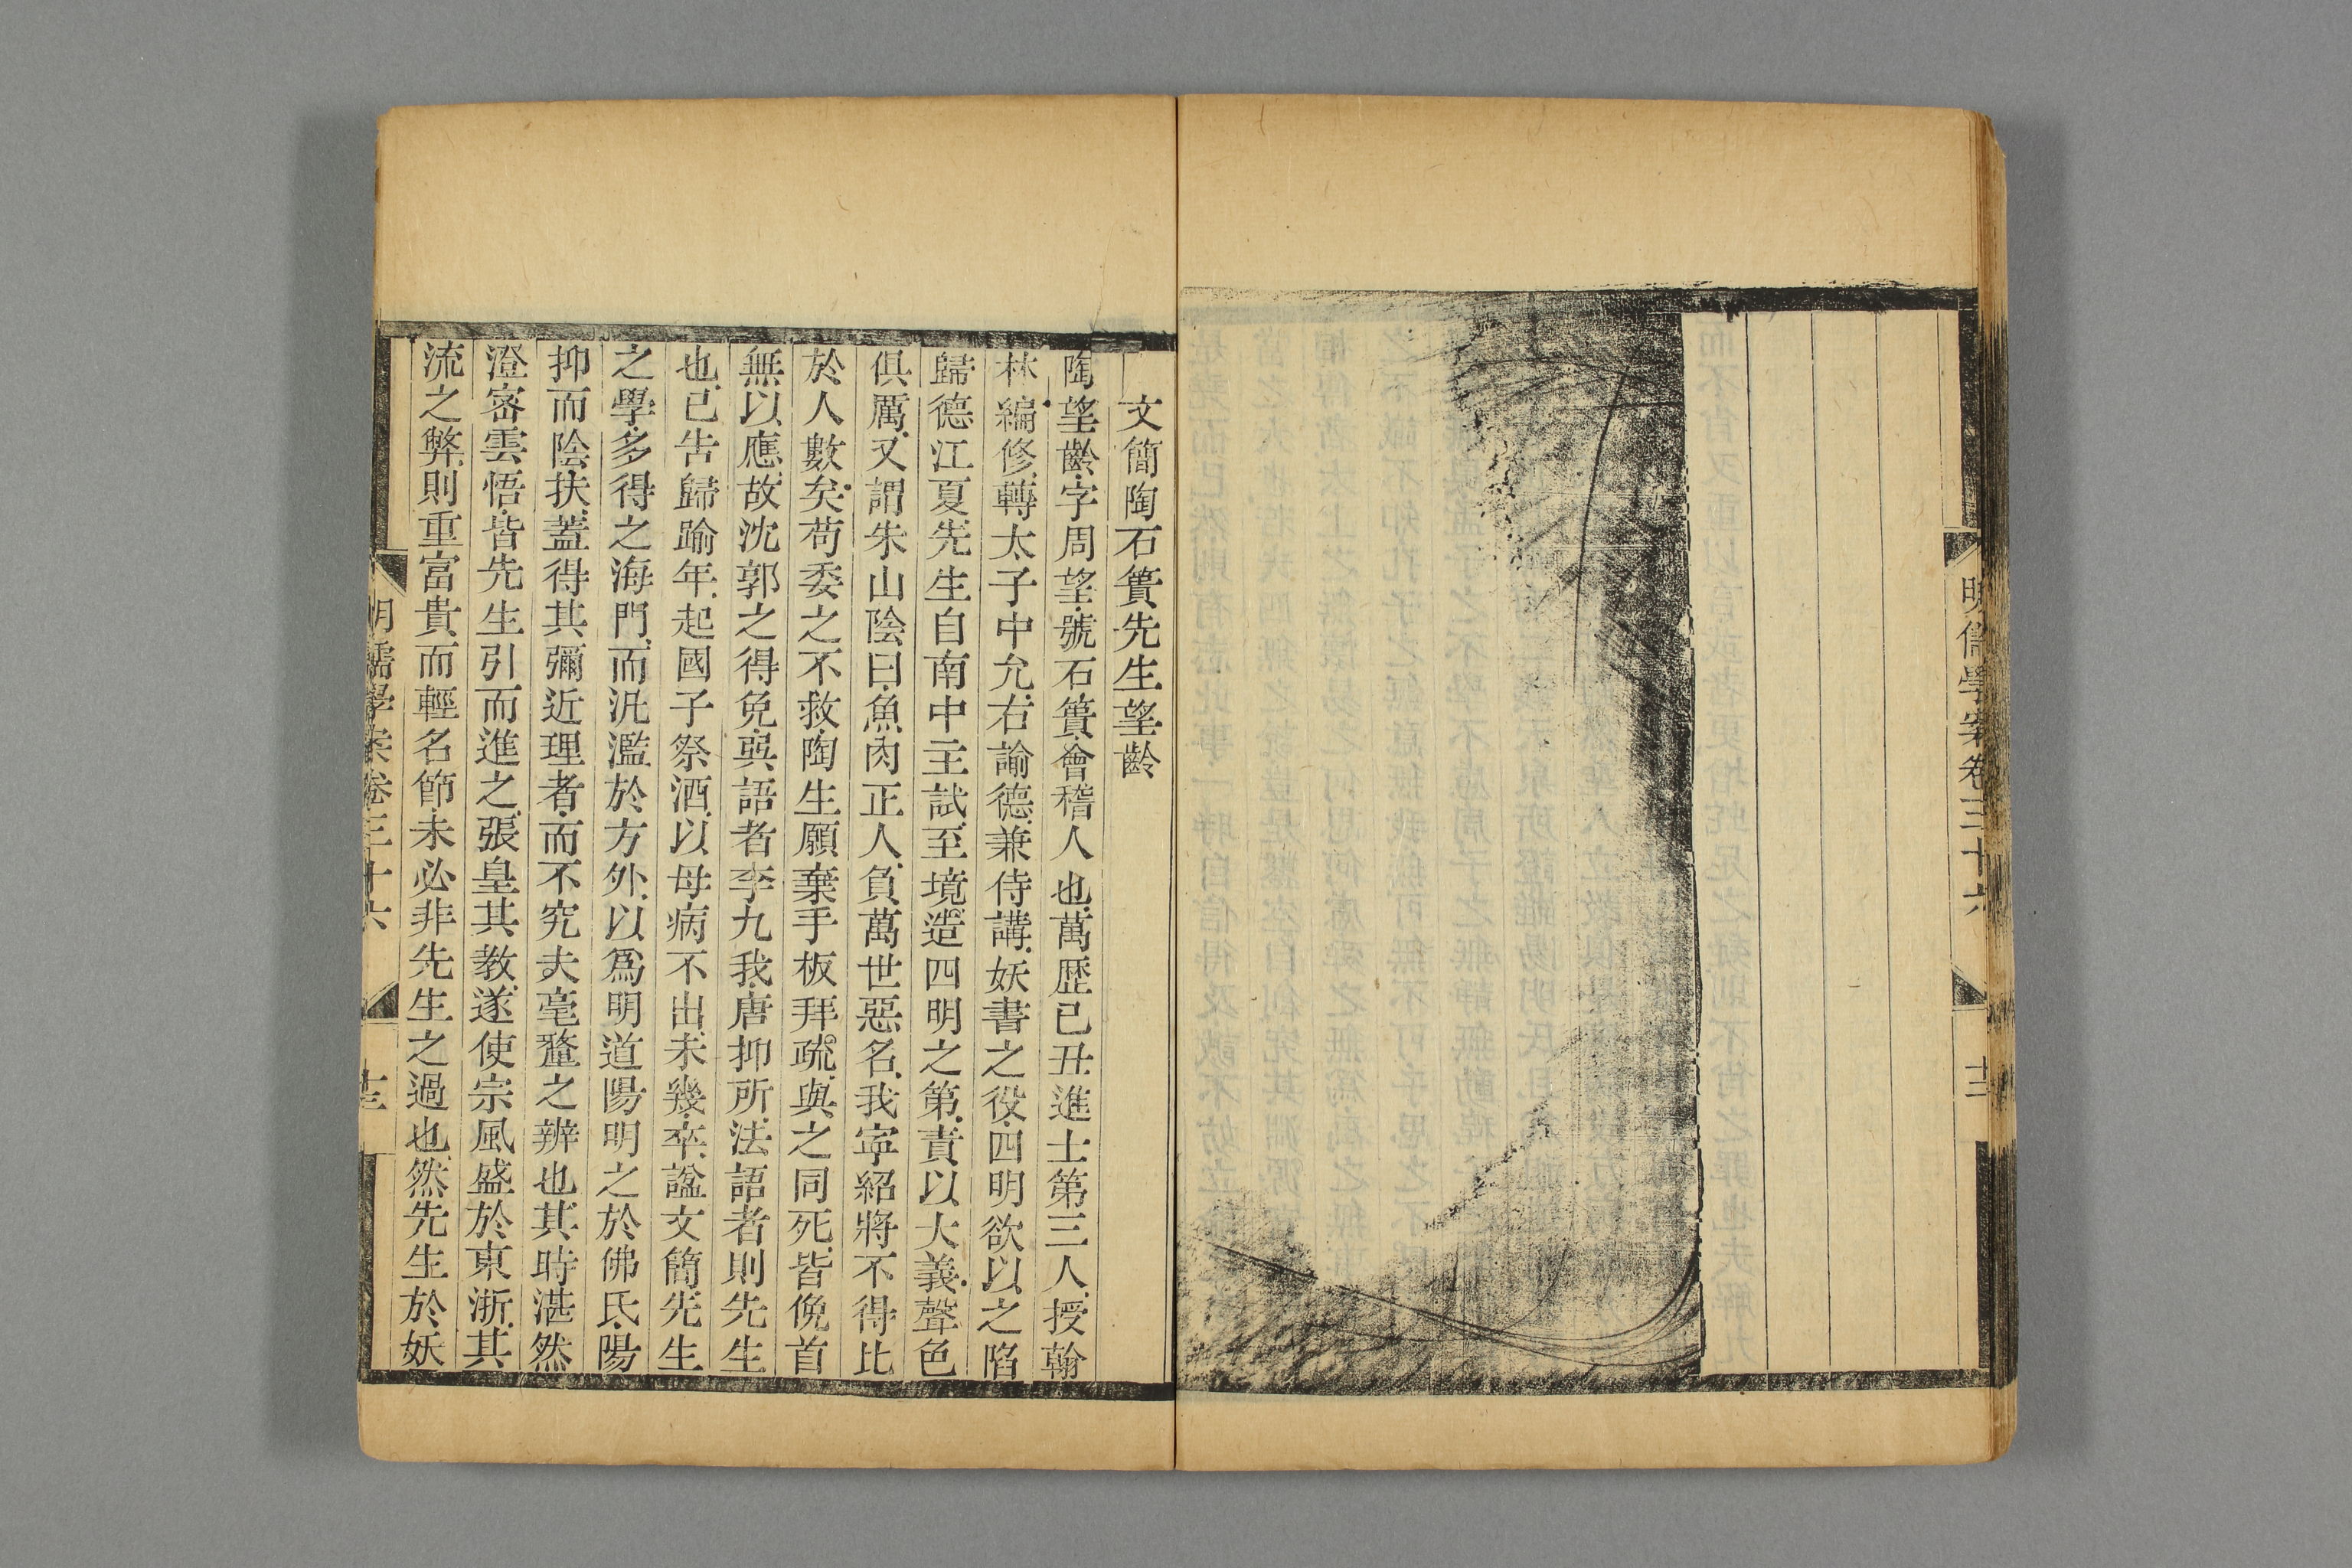 明儒學案卷三十六
文簡陶石簣先生望齡
陶望齡字周望號石簣會稽人也萬歷已丑進士第三人授翰
林編修轉太子中允右諭德兼侍講妖書之役四明欲以之陷
歸德江夏先生自南中主試至境造四明之第責以大義聲色
俱厲又謂朱山陰曰魚肉正人負萬世惡名我寜紹將不得比
於人數矣茍委之不救陶生願棄手板拜疏與之同死皆俛首
無以應故沈郭之得免巽語者李九我唐抑所法語者則先生
也已告歸踰年起國子祭酒以母病不出未幾卒諡文簡先生
之學多得之海門而汎濫於方外以爲明道陽明之於佛氏陽
抑而陰扶蓋得其彌近理者而不究夫毫釐之辨也其時湛然
澄宻雲悟皆先生引而進之張皇其教遂使宗風盛於東浙其
流之弊則重富貴而輕名節未必非先生之過也然先生於妖
明儒學案卷三十六
十三